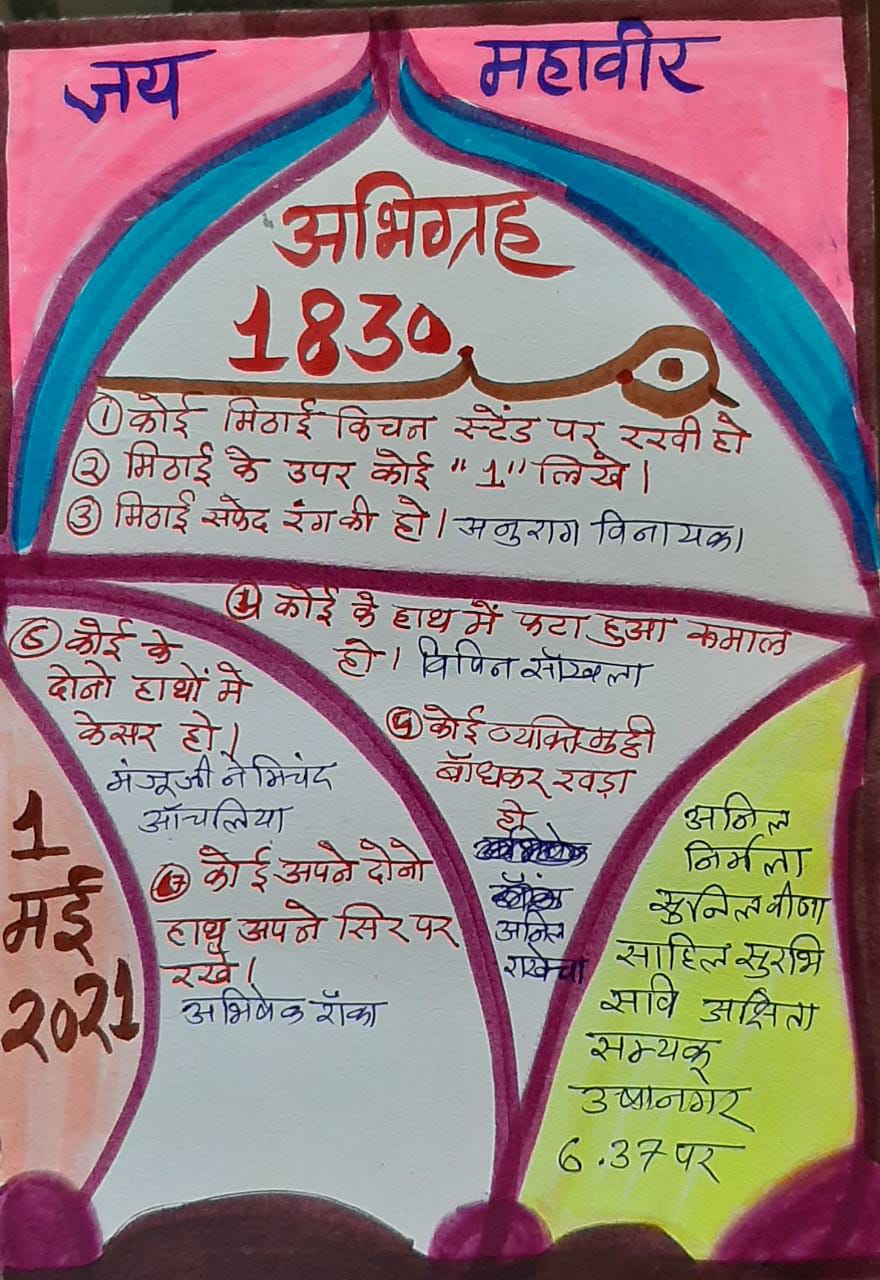 जय महावीर
अभिग्रह
1830
① कोई मिठाई किचन स्टेंड पर रखी हो
② मिठाई के उपर कोई "1" लिखे।
③ मिठाई सफेद रंग की हो। अनुराग विनायका
④ कोई के हाथ में फटा हुआ रूमाल
हो। विपिन सॉखला
⑤ कोई व्यक्ति मुट्ठी
बॉधकर खड़ा
हो
अनिल
राखेचा
⑥ कोई के
दोनो हाथों मे
केसर हो।
मंजूजी नेमिचंद
ऑचलिया
⑦ कोई अपने दोनो
हाथ अपने सिर पर
रखे।
अभिषेक रॉका
1
मई
2021
अनिल
निर्मला
सुनिल वीना
साहिल सुरभि
सवि अक्षिता
सम्यक्
उषानगर
6.37 पर